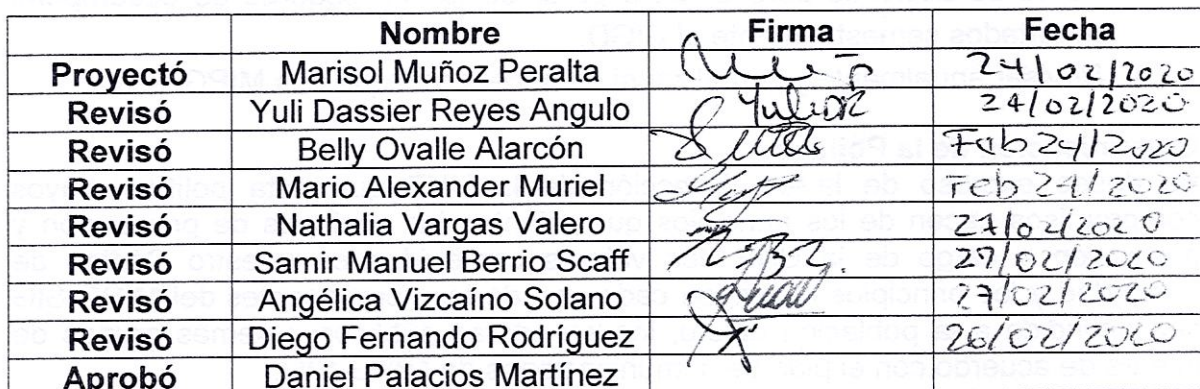 Nombre Firma Fecha
Proyectó Marisol Muñoz Peralta 24/02/2020
Revisó Yuli Dassier Reyes Angulo 24/02/2020
Revisó Belly Ovalle Alarcón Feb 24/2020
Revisó Mario Alexander Muriel Feb 24/2020
Revisó Nathalia Vargas Valero 27/02/2020
Revisó Samir Manuel Berrio Scaff 27/02/2020
Revisó Angélica Vizcaíno Solano 27/02/2020
Revisó Diego Fernando Rodríguez 26/02/2020
Aprobó Daniel Palacios Martínez